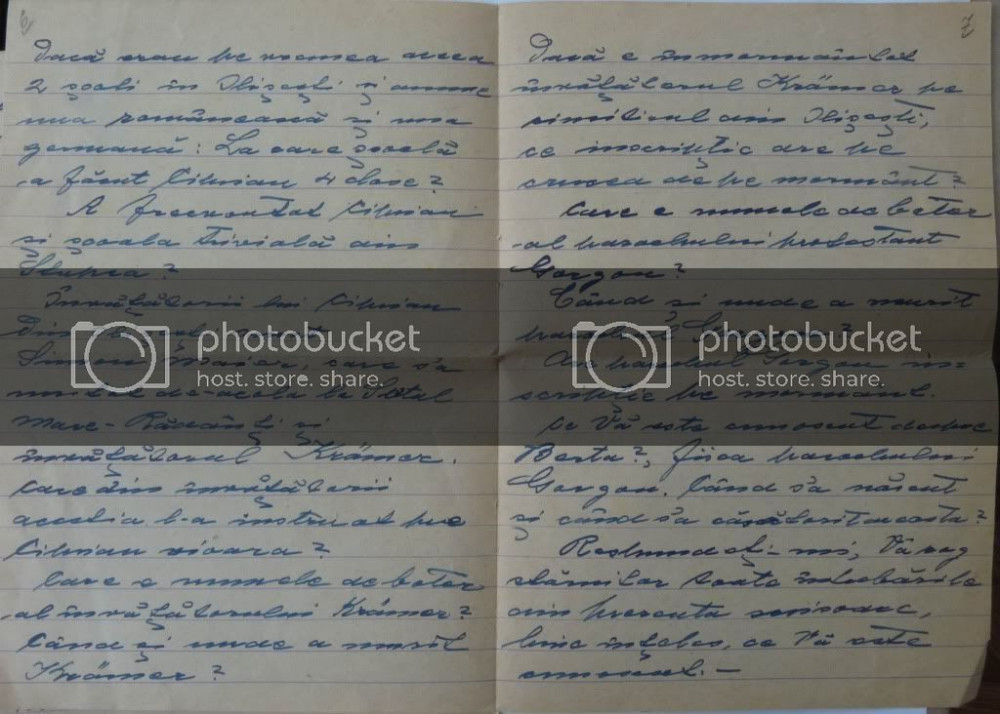 6
Dacă erau pe vremea aceea
2 școli în Ilișești și anume
una românească și una
germană: La care școală
a făcut Ciprian 4 clase?
A frecventat Ciprian
și școala trivială din
Stupca?
Învățătorii lui Ciprian
Simon Maier, care s'a
mutat de-acolo la Satul
Mare - Rădăuți și
învățătorul Krämer.
Care din învățătorii
aceștia l-a instruat pe
Ciprian vioara?
Care e numele de botez
al învățătorului Krämer?
Când și unde a murit
Krämer?
7
Dacă e înmormântat
învățătorul Krämer pe
cimitirul din Ilișești,
ce inscripție are pe
crucea de pe mormânt?
Care e numele de botez
al parochului protestant
Gorgon?
Când și unde a murit
parochul Gorgon?
Are parochul Gorgon in-
scripție pe mormânt.
Ce Vă este cunoscut despre
Berta?, fiica parochului
Gorgon. Când s'a născut
și când s'a căsătorit aceasta?
Răspundeți-mi, Vă rog
stăruitor toate întrebările
din prezenta scrisoare,
bine înțeles, ce Vă este
cunoscut.—
photobucket
host. store. share.
photobucket
host. store. share.